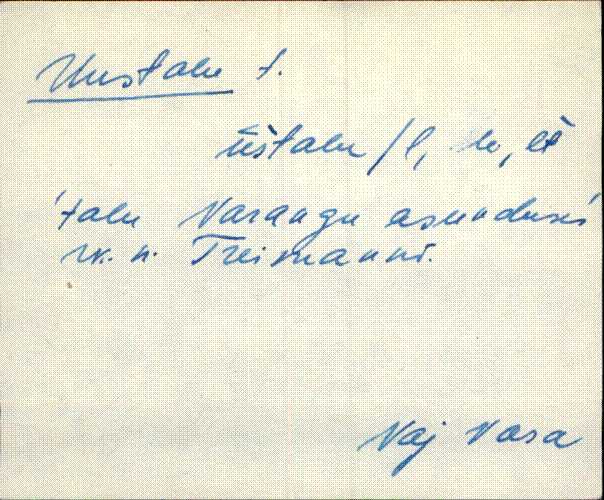 Uustalu t.
üštalu /l, le, lt
'talu Varangu asunduses'
r.k. n. Treimanni.
Vaj Vasa